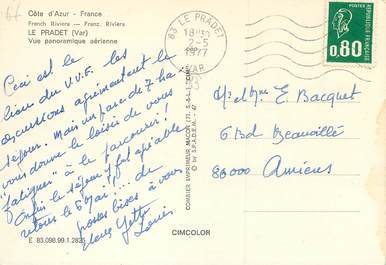 Côte d'Azur - France
French Riviera - Franz. Riviera
LE PRADET (Var)
Vue panoramique aérienne
Ceci est le
lieu du V.V.F. les
excursions agrémentent le
séjour. Mais un parc de 7 ha
vous donne le loisir de vous
"fatiguer" à le parcourir!
Enfin le séjour fut agréable
retour le 5 Mai!... de
grosses bises à vous
tous Yette
Louis
E 83.098.99.1.2825
CIMCOLOR
COMBIER IMPRIMEUR MACON (71. S.-&-L.) "CIM"
© by S.P.A.D.E.M.
83 LE PRADET
18H30
2-5
1977
VAR
POSTES
RÉPUBLIQUE FRANÇAISE
0,80
Mr et Mme E. Bacquet
6 Bd Beauvillé
80000 Amiens